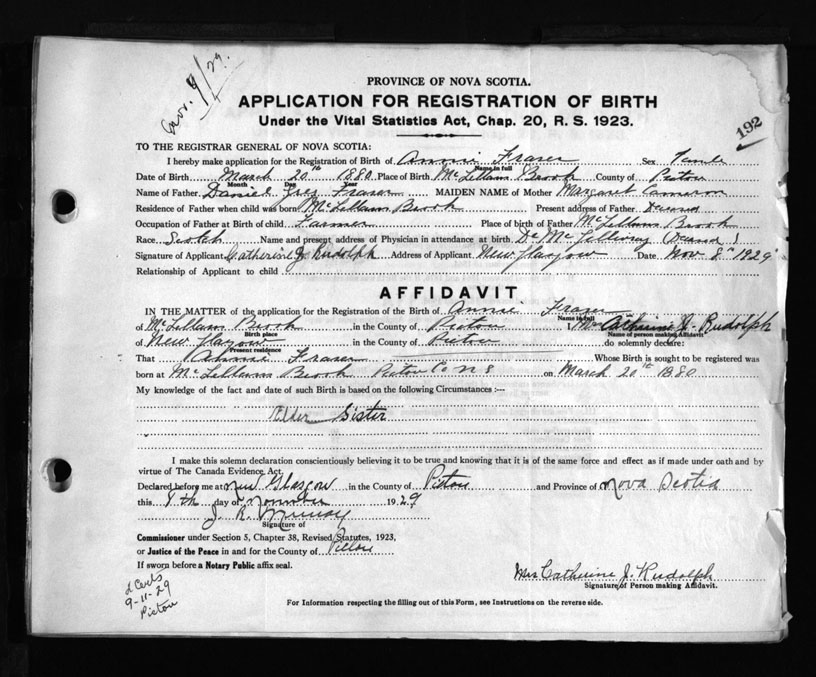 Nov. 9/29.
PROVINCE OF NOVA SCOTIA.
APPLICATION FOR REGISTRATION OF BIRTH
Under the Vital Statistics Act, Chap. 20, R. S. 1923.
192
TO THE REGISTRAR GENERAL OF NOVA SCOTIA:
I hereby make application for the Registration of Birth of Annie Fraser Sex Female
Name in full
Date of Birth March 20th 1880 Place of Birth McLellans Brook County of Pictou
Month Day Year
Name of Father Daniel Fraser MAIDEN NAME of Mother Margaret Cameron
Residence of Father when child was born McLellans Brook Present address of Father Deceased
Occupation of Father at Birth of child Farmer Place of birth of Father McLellans Brook
Race Scotch Name and present address of Physician in attendance at birth Dr McGillivray (Deceased)
Signature of Applicant Catherine J Rudolph Address of Applicant New Glasgow Date Nov 8th 1929
Relationship of Applicant to child
AFFIDAVIT.
IN THE MATTER of the application for the Registration of the Birth of Annie Fraser
Name in full
of McLellans Brook in the County of Pictou I Mrs Catherine J. Rudolph
Birth place Name of person making Affidavit
of New Glasgow in the County of Pictou do solemnly declare:
Present residence
That Annie Fraser Whose Birth is sought to be registered was
born at McLellans Brook Pictou Co N S on March 20th 1880
My knowledge of the fact and date of such Birth is based on the following Circumstances :—
Older Sister
I make this solemn declaration conscientiously believing it to be true and knowing that it is of the same force and effect as if made under oath and by
virtue of The Canada Evidence Act.
Declared before me at New Glasgow in the County of Pictou and Province of Nova Scotia
this 8th day of November 1929
J. R. Murray
Signature of
Commissioner under Section 5, Chapter 38, Revised Statutes, 1923,
or Justice of the Peace in and for the County of Pictou
If sworn before a Notary Public affix seal.
Mrs Catherine J. Rudolph
Signature of Person making Affidavit.
2 Certs
9-11-29
Pictou
For Information respecting the filling out of this Form, see Instructions on the reverse side.